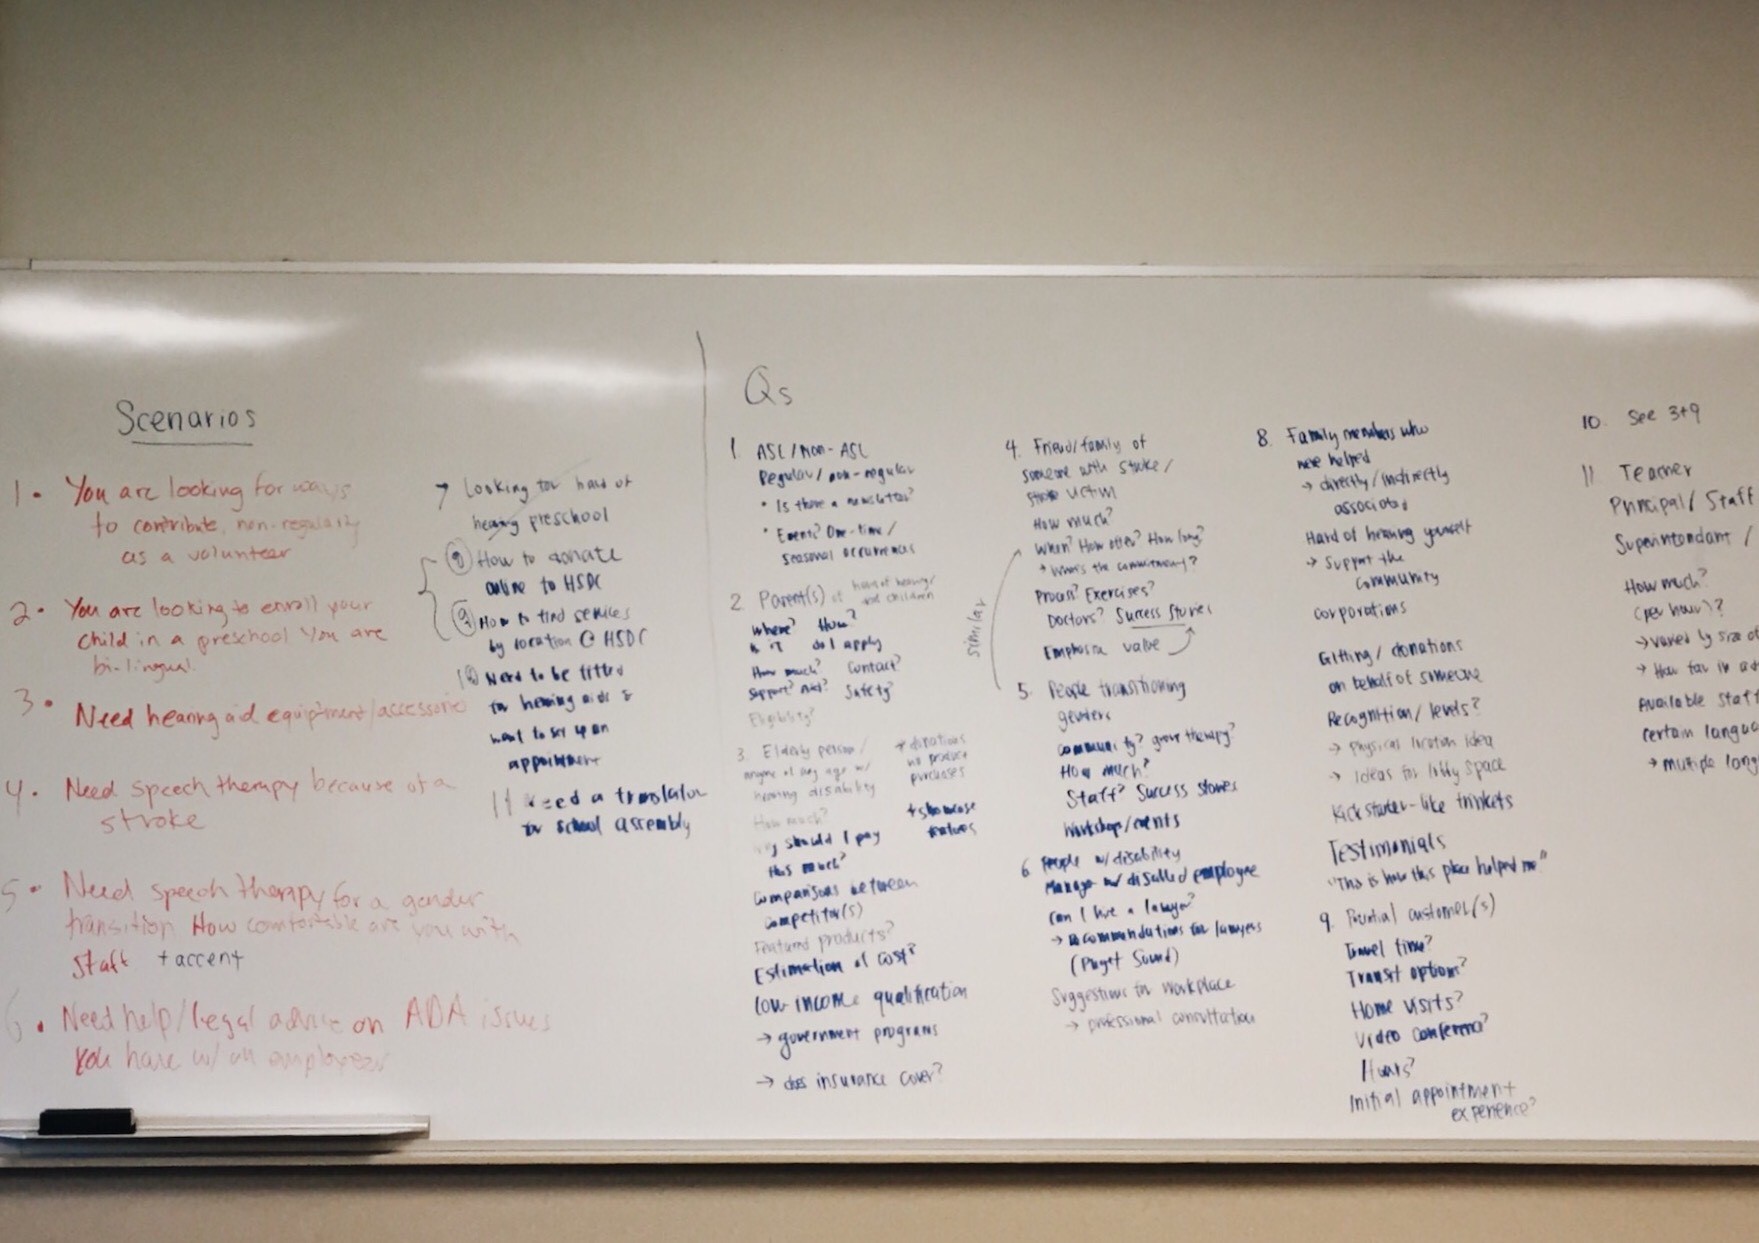 Scenarios
1. You are looking for ways
to contribute, non-regularly
as a volunteer
2. You are looking to enroll your
child in a preschool You are
bi-lingual.
3. Need hearing aid equiptment/accessories
4. Need speech therapy because of a
stroke
5. Need speech therapy for a gender
transition How comfortable are you with
staff + accent
6. Need help/legal advice on ADA issues
you have w/ an employee
7 Looking for hard of
hearing preschool
8 How to donate
online to HSDC
9 How to find services
by location @ HSDC
10 Need to be fitted
for hearing aids &
want to set up an
appointment
11 Need a translator
for school assembly
Qs
1. ASL/non-ASL
Regular/non-regular
• Is there a newsletter?
• Events? One-time/
seasonal occurrences
2. Parent(s) of hard of hearing/
children
Where? How?
is it do I apply
How much? Contact?
Support? Aid? Safety?
Eligibility?
3. Elderly person/
anyone of any age w/
hearing disability
+ donations
no product
purchases
How much?
why should I pay
this much?
+ showcase
features
Comparisons between
competitor(s)
Featured products?
Estimation of cost?
low-income qualification
→ government programs
→ does insurance cover?
4. Friend/family of
someone with stroke/
stroke victim
How much?
When? How often? How long?
What's the commitment?
Process? Exercises?
Doctors? Success stories
Emphasize value
similar
5. People transitioning
genders
Community? group therapy?
How much?
Staff? Success stories
Workshops/events
6. People w/ disability
Manager w/ disabled employee
Can I hire a lawyer?
→ recommendations for lawyers
(Puget Sound)
Suggestions for workplace
→ professional consultation
8. Family members who
were helped
→ directly/indirectly
associated
Hard of hearing yourself
→ Support the
community
corporations
Gifting/donations
on behalf of someone
Recognition/levels?
→ physical location idea
→ Ideas for lobby space
Kickstarter-like trinkets
Testimonials
"This is how this place helped me"
9. Potential customer(s)
Travel time?
Transit options?
Home visits?
Video conference?
Hours?
Initial appointment
experience?
10. See 3+9
11. Teacher
Principal/Staff
Superintendant /
How much?
(per hour)?
→ varied by size of
→ How far in ad
Available staff
certain langua
→ multiple lang